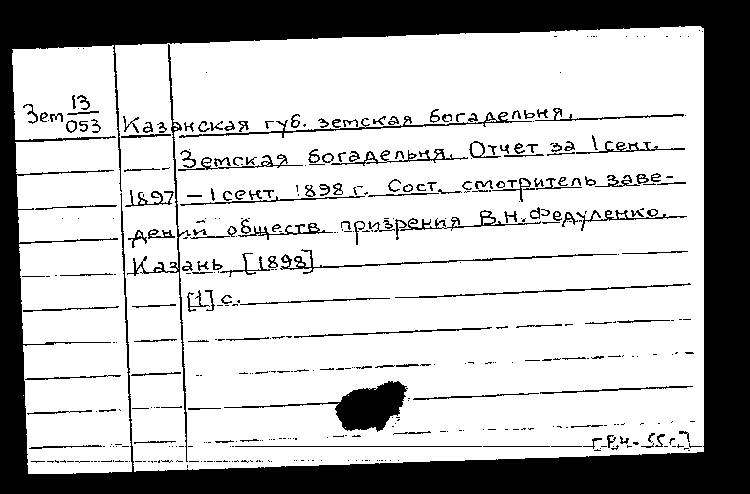 Зем 13/053
Казанская губ. земская богадельня.
Земская богадельня. Отчет за 1 сент.
1897 – 1 сент. 1898 г. Сост. смотритель заве-
дений обществ. призрения В.Н. Федуленко.
Казань, [1898].
[1] с.
55 г.]